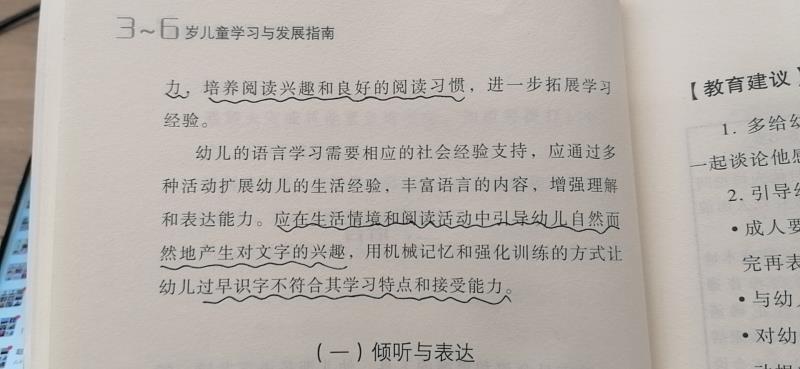 3~6岁儿童学习与发展指南
力，培养阅读兴趣和良好的阅读习惯，进一步拓展学习
经验。
幼儿的语言学习需要相应的社会经验支持，应通过多
种活动扩展幼儿的生活经验，丰富语言的内容，增强理解
和表达能力。应在生活情境和阅读活动中引导幼儿自然而
然地产生对文字的兴趣，用机械记忆和强化训练的方式让
幼儿过早识字不符合其学习特点和接受能力。
（一）倾听与表达
【教育建议】
1. 多给幼
一起谈论他感
2. 引导幼
•成人要
完再表
•与幼
•对幼